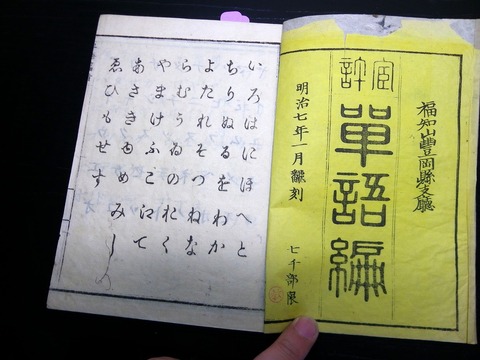 福知山豐岡縣支廳
官許
單語編
明治七年一月飜刻
七千部限
いろはにほへと
ちりぬるをわか
よたれそつねな
らむうゐのおく
やまけふこえて
あさきゆめみし
ゑひもせす